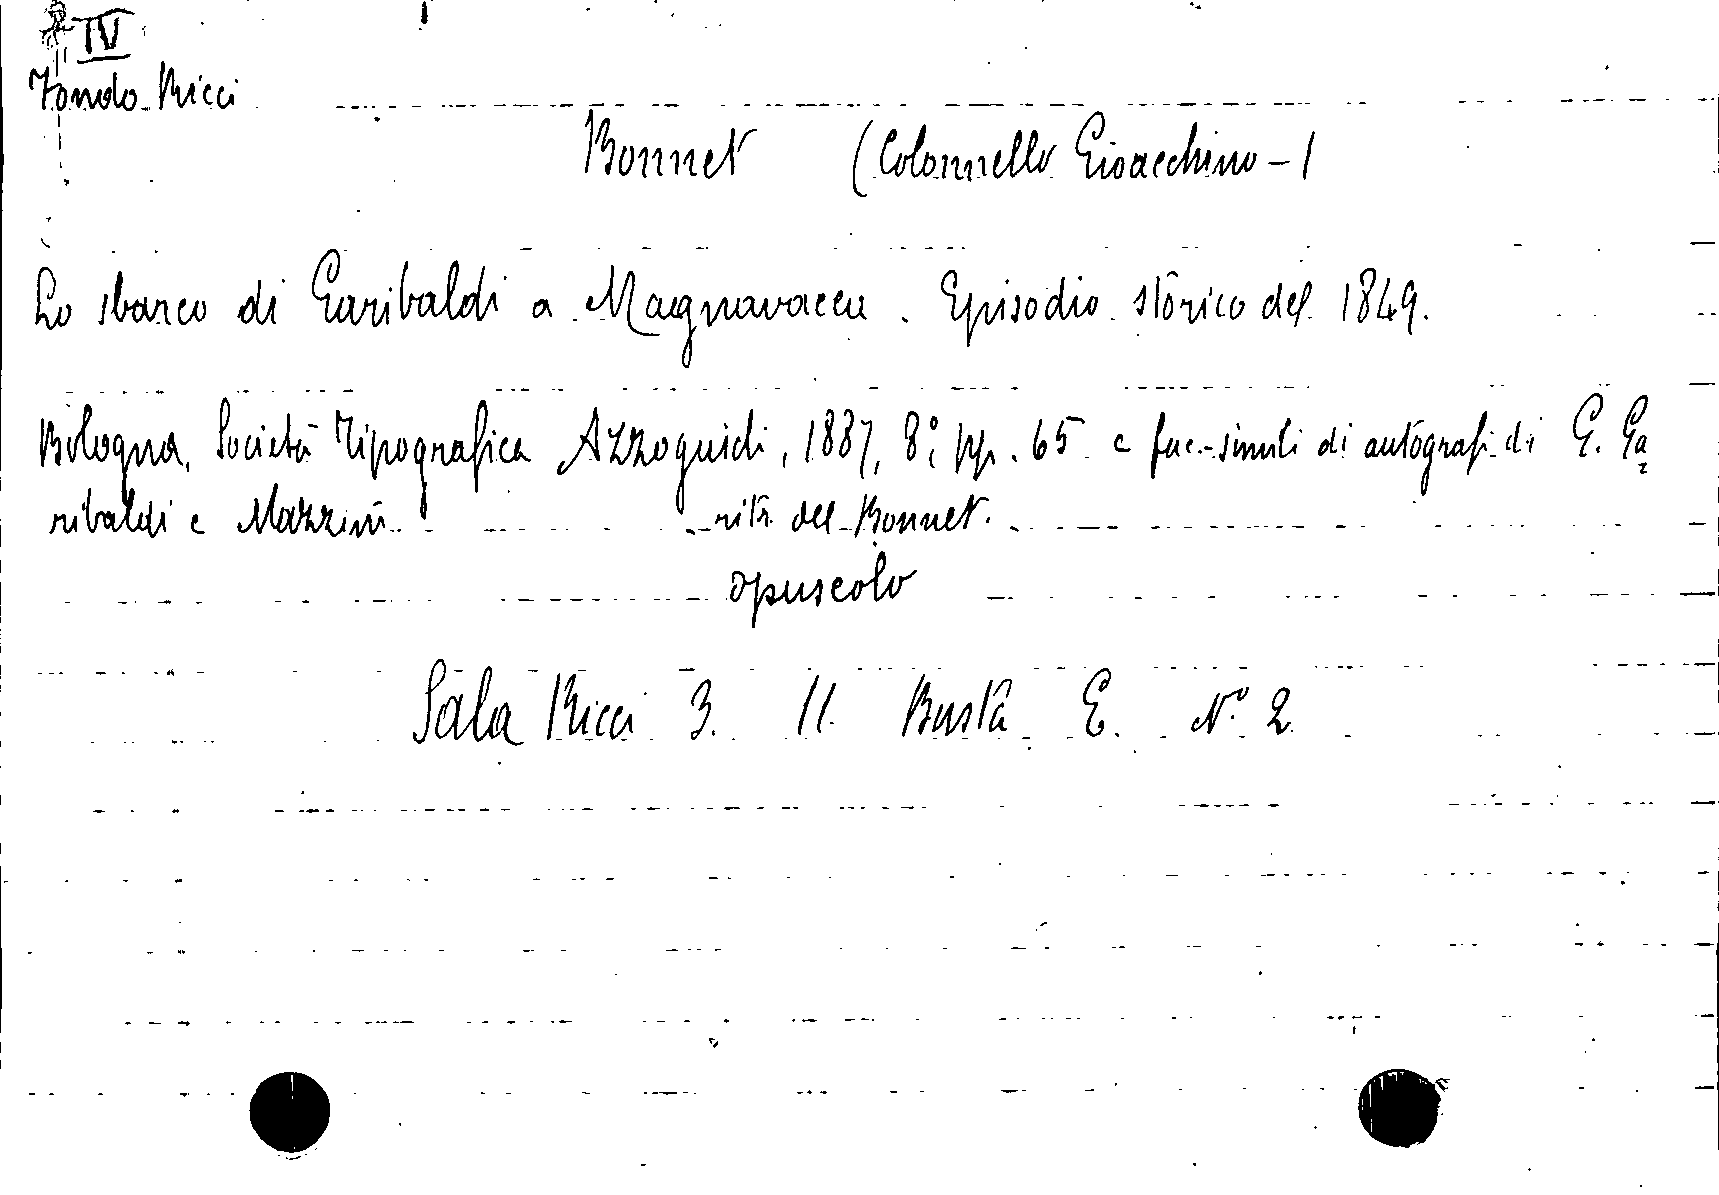 IV
Fondo Ricci
Bonnet (Colonnello Gioacchino-)
Lo sbarco di Garibaldi a Magnavacca. Episodio storico del 1849.
Bologna, Società Tipografica Azzoguidi, 1887, 8°, pp. 65 e fac-simili di autografi di G. Ga=
ribaldi e Mazzini ritr. del Bonnet.
opuscolo
Sala Ricci 3. 11. Busta E. N.° 2